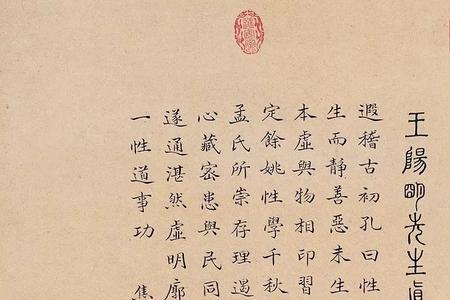 王陽明先生真
遐稽古初孔曰性
生而靜善惡未生
本虛與物相印習
定餘姚性學千秋
孟氏所崇存理遏
心藏密患與民同
遂通湛然虛明廓
一性道事功
焦